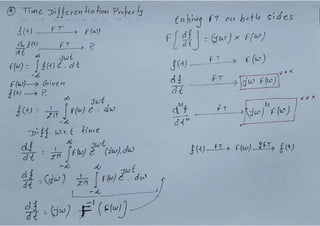 ④ Time Differentiation Property
f(t) —FT→ F(w)
df/dt —FT→ ?
F(w) = ∫_{-∞}^{∞} f(t) e^{-jwt} dt
F(w) → Given
f(t) → ?
f(t) = 1/2π ∫_{-∞}^{∞} F(w) e^{jwt} . dw
Diff. w.r.t time
df/dt = 1/2π ∫_{-∞}^{∞} F(w) e^{jwt} (jw) . dw
df/dt = (jw) 1/2π ∫_{-∞}^{∞} F(w) e^{jwt} . dw
df/dt = (jw) F^{-1} [F(w)]
taking FT on both sides
F[df/dt] = (jw) × F(w)
f(t) —FT→ F(w)
df/dt —FT→ jw F(w) ***
d^n f/dt^n —FT→ (jw)^n F(w) ***
f(t) —FT→ F(w) —IFT→ f(t)